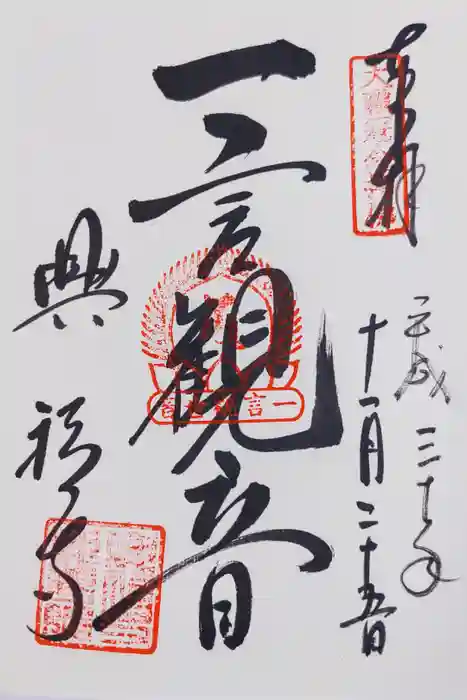 奉拝
平成三十年
十一月二十五日
一言観音
興福寺
一言観音